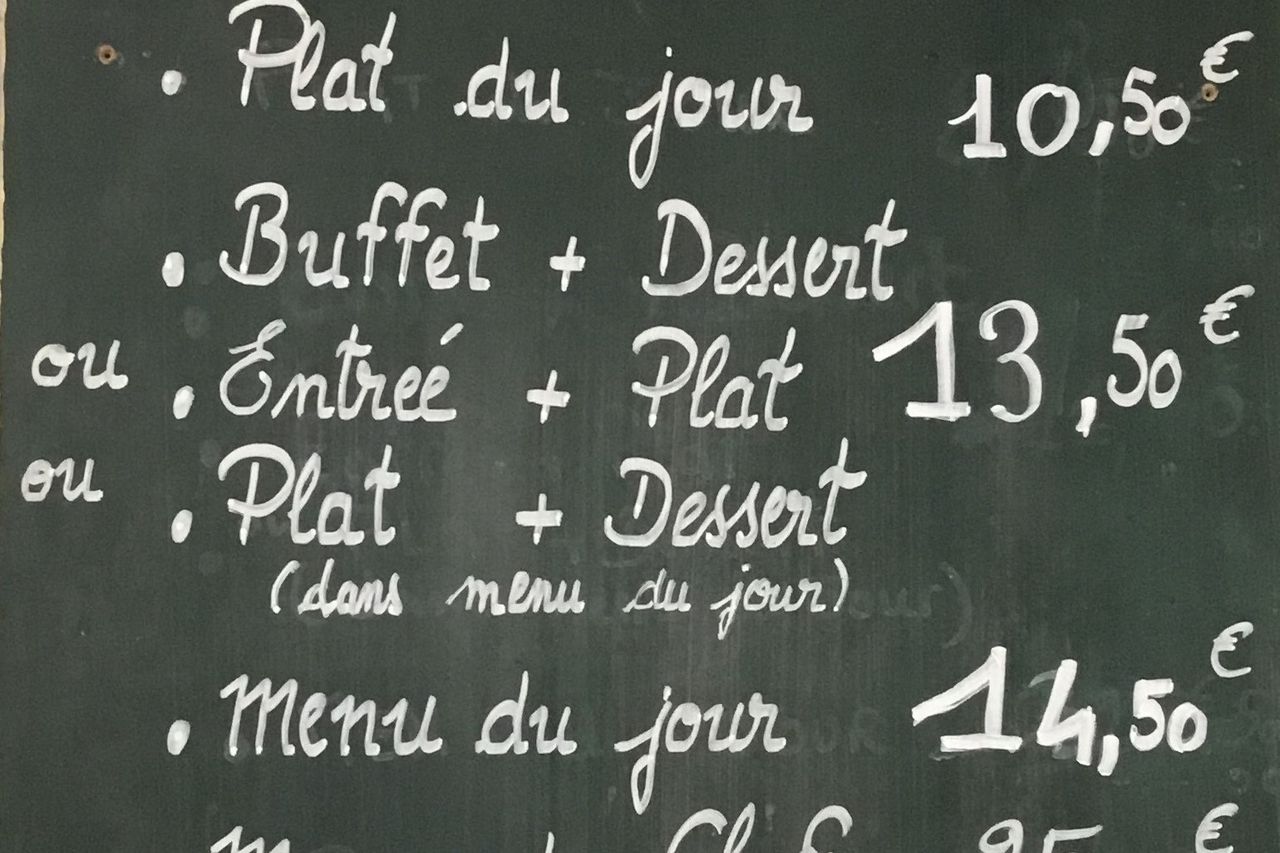 • Plat du jour 10,50€
• Buffet + Dessert
ou • Entreé + Plat 13,50€
ou • Plat + Dessert
(dans menu du jour)
• Menu du jour 14,50€
€